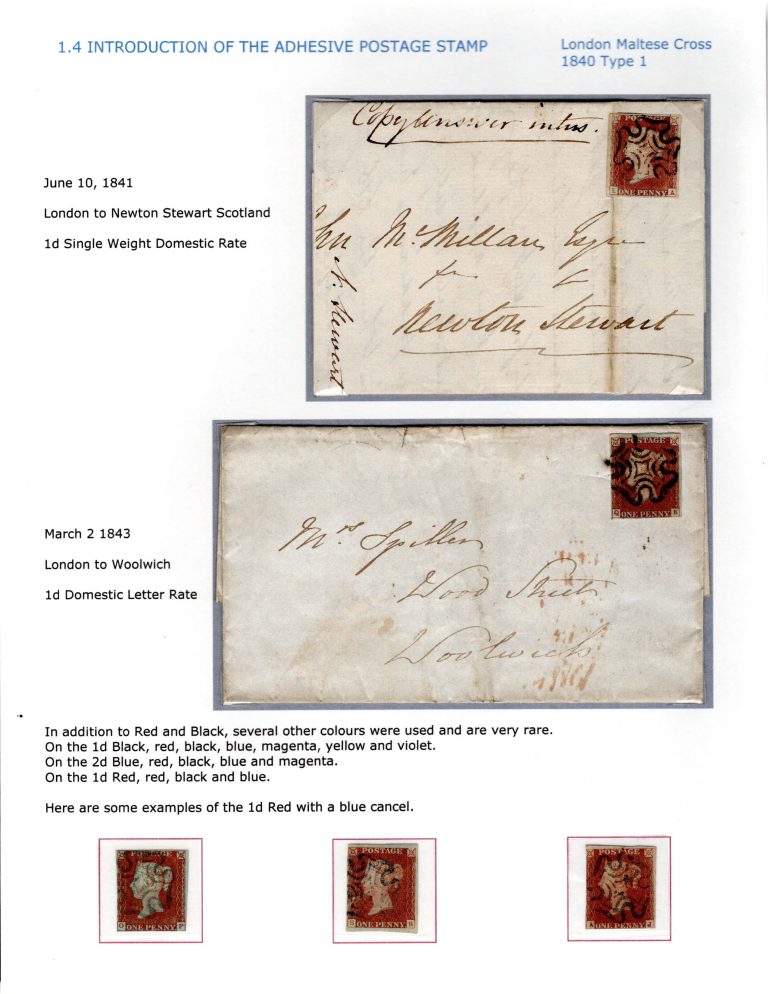 1.4 INTRODUCTION OF THE ADHESIVE POSTAGE STAMP
London Maltese Cross
1840 Type 1
June 10, 1841
London to Newton Stewart Scotland
1d Single Weight Domestic Rate
intus.
POSTAGE
ONE PENNY A
McMillan Esqre
Newton Stewart
N. Stewart
March 2 1843
London to Woolwich
1d Domestic Letter Rate
POSTAGE
ONE PENNY
Mrs Spiller
Wood Street
Woolwich
In addition to Red and Black, several other colours were used and are very rare.
On the 1d Black, red, black, blue, magenta, yellow and violet.
On the 2d Blue, red, black, blue and magenta.
On the 1d Red, red, black and blue.
Here are some examples of the 1d Red with a blue cancel.
POSTAGE
ONE PENNY
POSTAGE
ONE PENNY
POSTAGE
ONE PENNY